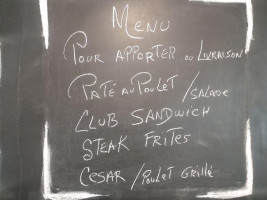 MENU
POUR APPORTER OU LIVRAISON
PATÉ AU POULET / SALADE
CLUB SANDWICH
STEAK FRITES
CESAR / POULET GRILLÉ